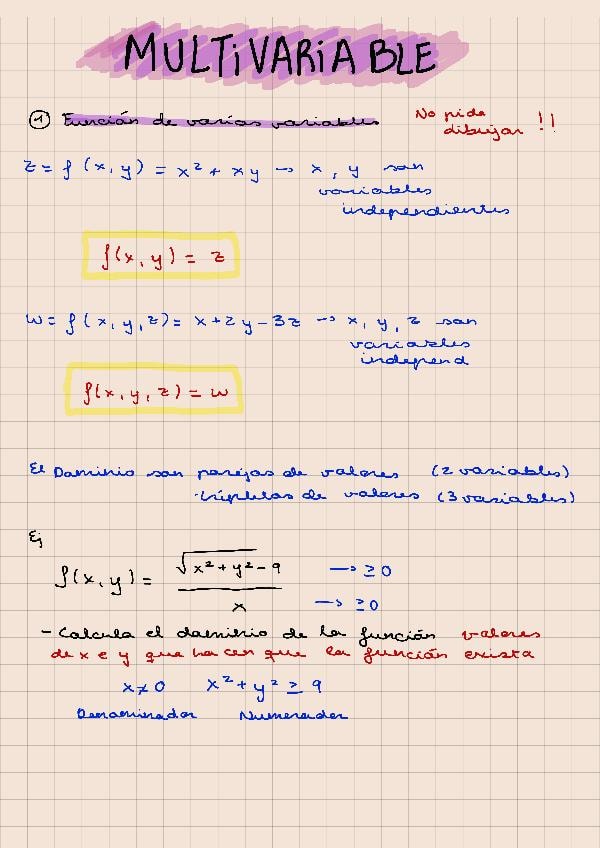 MULTIVARIABLE
① Función de varias variables
No pide
dibujar !!
z = f (x, y) = x² + xy → x, y son
variables
independientes
f(x, y) = z
w = f (x, y, z) = x + 2y - 3z → x, y, z son
variables
independ
f(x, y, z) = w
El Dominio son parejas de valores (2 variables)
tripletas de valores (3 variables)
Ej
f(x, y) = √x² + y² - 9 / x
→ ≥ 0
→ ≥ 0
- Calcula el dominio de la función valores
de x e y que hacen que la función exista
x ≠ 0 x² + y² ≥ 9
Denominador Numerador